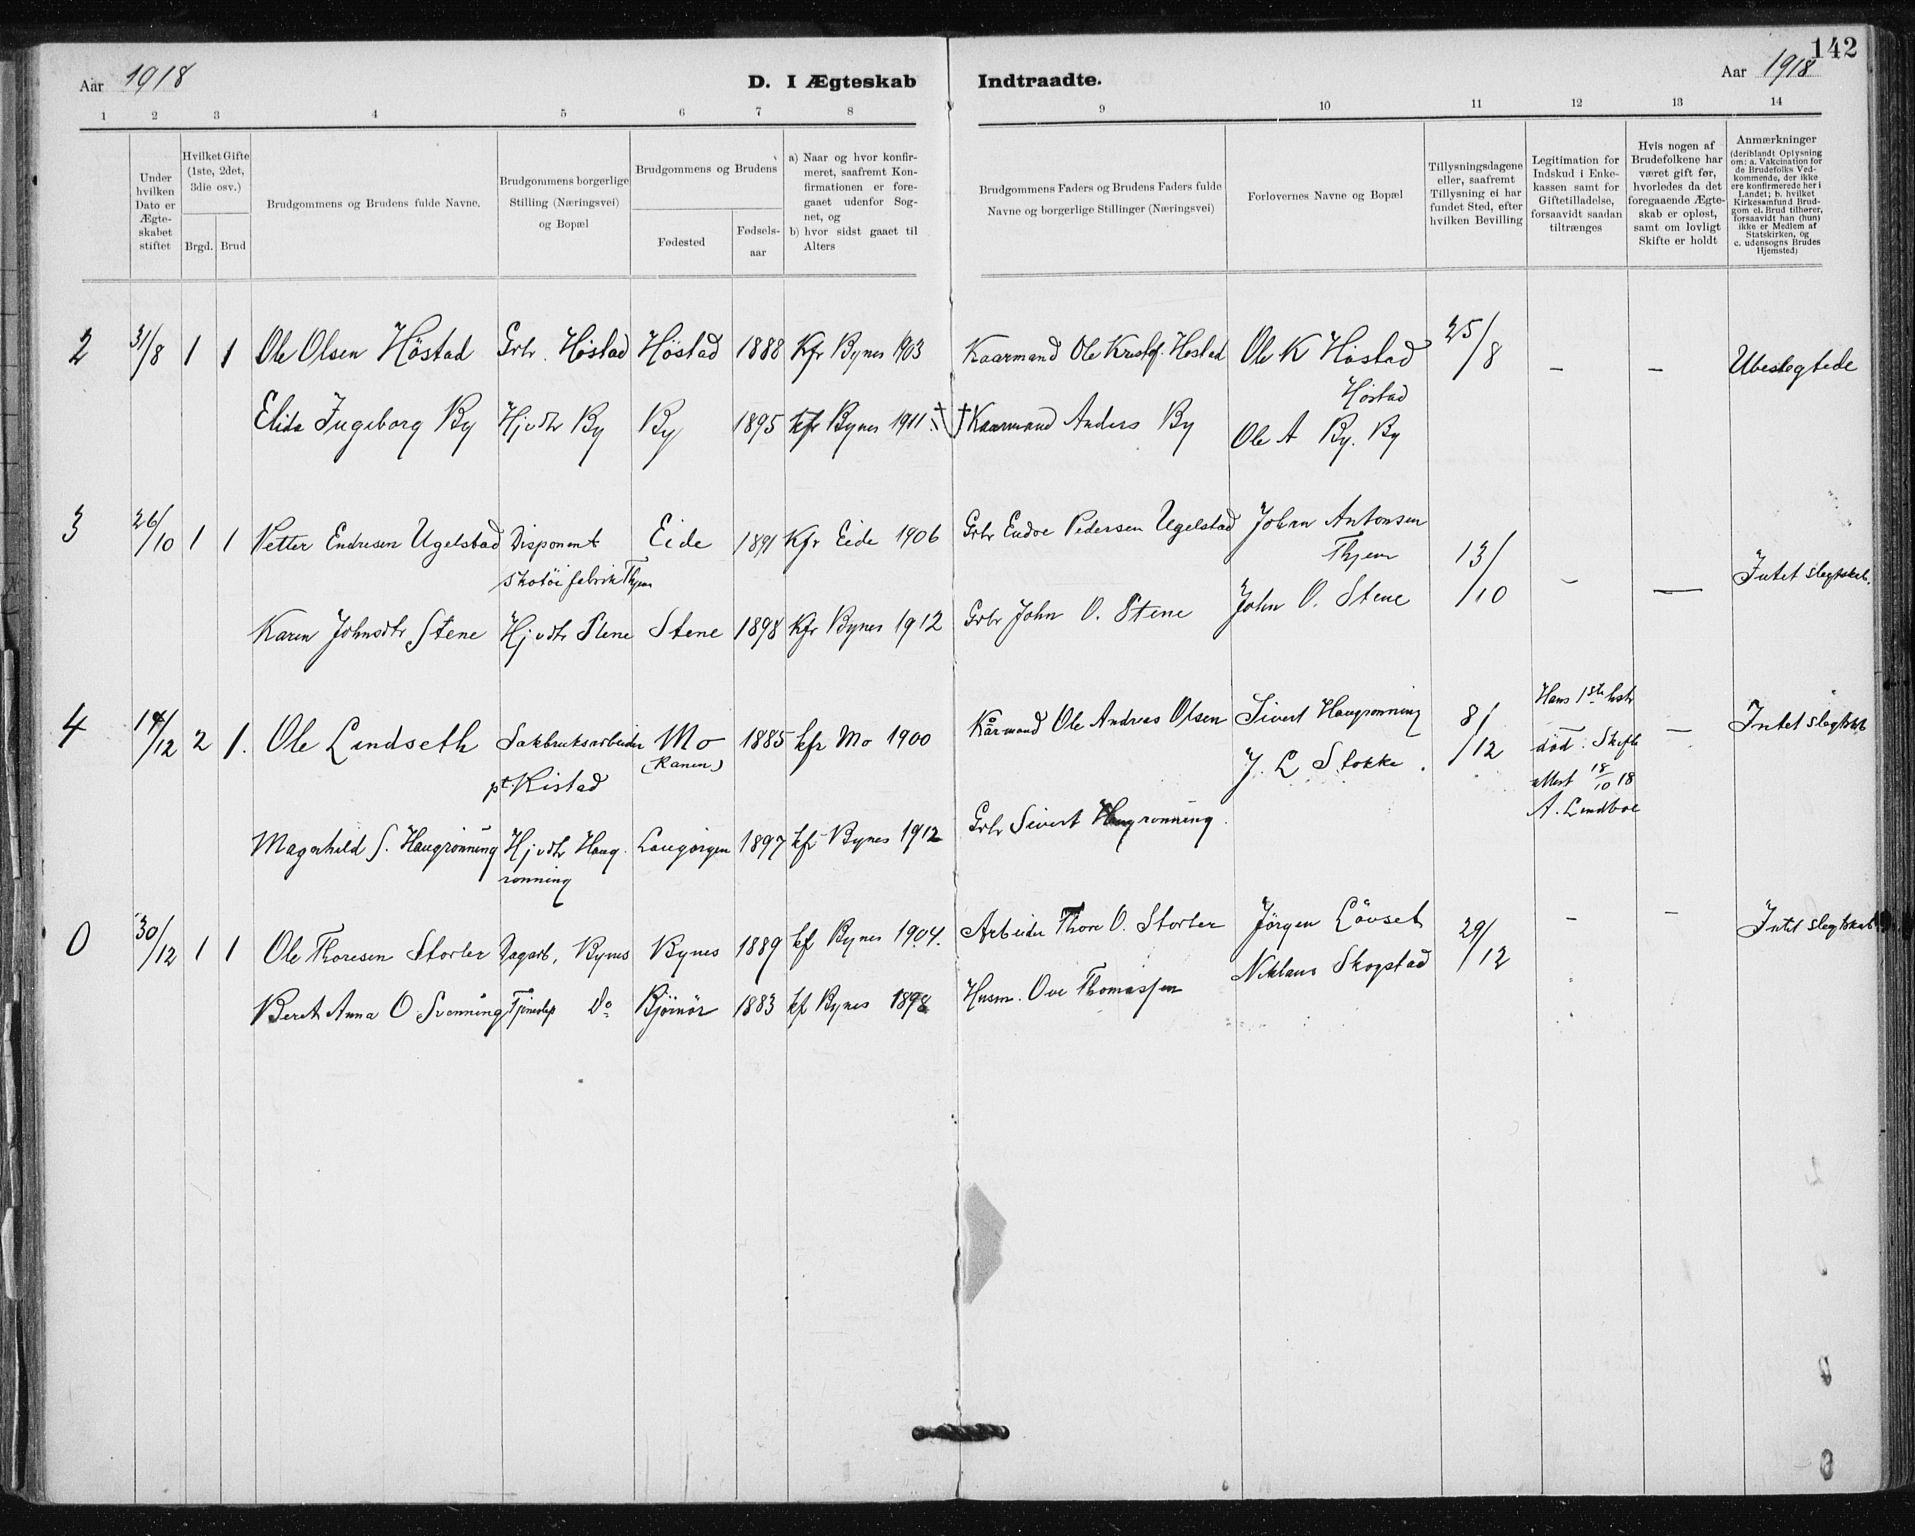 142
Aar 1918
D. I Ægteskab Indtraadte.
Aar 1918
1 2 3 4 5 6 7 8 9 10 11 12 13 14
Under
hvilken
Dato er
Ægte-
skabet
stiftet
Hvilket Gifte
(1ste, 2det,
3die osv.)
Brgd. Brud
Brudgommens og Brudens fulde Navne.
Brudgommens borgerlige
Stilling (Næringsvei)
og Bopæl
Brudgommens og Brudens
Fødested
Fødsels-
aar
a) Naar og hvor konfir-
meret, saafremt Kon-
firmationen er fore-
gaaet udenfor Sog-
net, og
b) hvor sidst gaaet til
Alters
Brudgommens Faders og Brudens Faders fulde
Navne og borgerlige Stillinger (Næringsvei)
Forlovernes Navne og Bopæl
Tillysningsdagene
eller, saafremt
Tillysning ei har
fundet Sted, efter
hvilken Bevilling
Legitimation for
Indskud i Enke-
kassen samt for
Giftetilladelse,
forsaavidt saadan
tiltrænges
Hvis nogen af
Brudefolkene har
været gift før,
hvorledes da det
foregaaende Ægte-
skab er opløst,
samt om lovligt
Skifte er holdt
Anmærkninger
(deriblandt Oplysning
om: a. Vakcination for
de Brudefolks Ved-
kommende, der ikke
ere konfirmerede her i
Landet; b. hvilket
Kirkesamfund Brud-
gom el. Brud tilhører,
forsaavidt han (hun)
ikke er Medlem af
Statskirken, og
c. udensogns Brudes
Hjemsted)
2 31/8 1 1 Ole Olsen Höstad Grbr. Höstad Höstad 1888 Kfr Bynes 1903 Kaarmand Ole Kristof. Höstad Ole K Höstad 25/8 - - Ubeslegtede
Höstad
Elida Ingeborg By Hjvdtr By By 1895 kfr Bynes 1911 † Kaarmand Anders By Ole A By. By
3 26/10 1 1 Petter Endresen Ugelstad Disponent Eide 1891 Kfr Eide 1906 Grbr Endre Pedersen Ugelstad Johan Antonsen 13/10 - - Intet slegtskab.
skotöi fabrik Thjem Thjem
Karen Johnsdtr Stene Hjvdtr Stene Stene 1898 Kfr Bynes 1912 Grbr John O. Stene John O. Stene
4 14/12 2 1. Ole Lindseth Sakbruksarbeider Mo 1885 kfr Mo 1900 Kårmand Ole Andreas Olsen Sivert Haugrønning 8/12 Hans 1ste hustr - Intet slegtskab
pt. Ristad (Ranen) J. L Stokke död. Skifte
attest 18/10 18
A. Lindboe
Magnhild S. Haugrønning Hjvdtr Haug- 1897 kfr Bynes 1912 Grbr Sivert Haugrønning.
rønning
0 30/12 1 1 Ole Thoresen Storler Dagarb. Bynes Bynes 1889 kf Bynes 1904. Arbeider Thore O. Storler Jörgen Lövset 29/12 - - Intet slegtskab
Beret Anna O Svenning Do Bjørnør 1883 kf Bynes 1898 Husm. Ove Thomassen Niklaus Skogstad